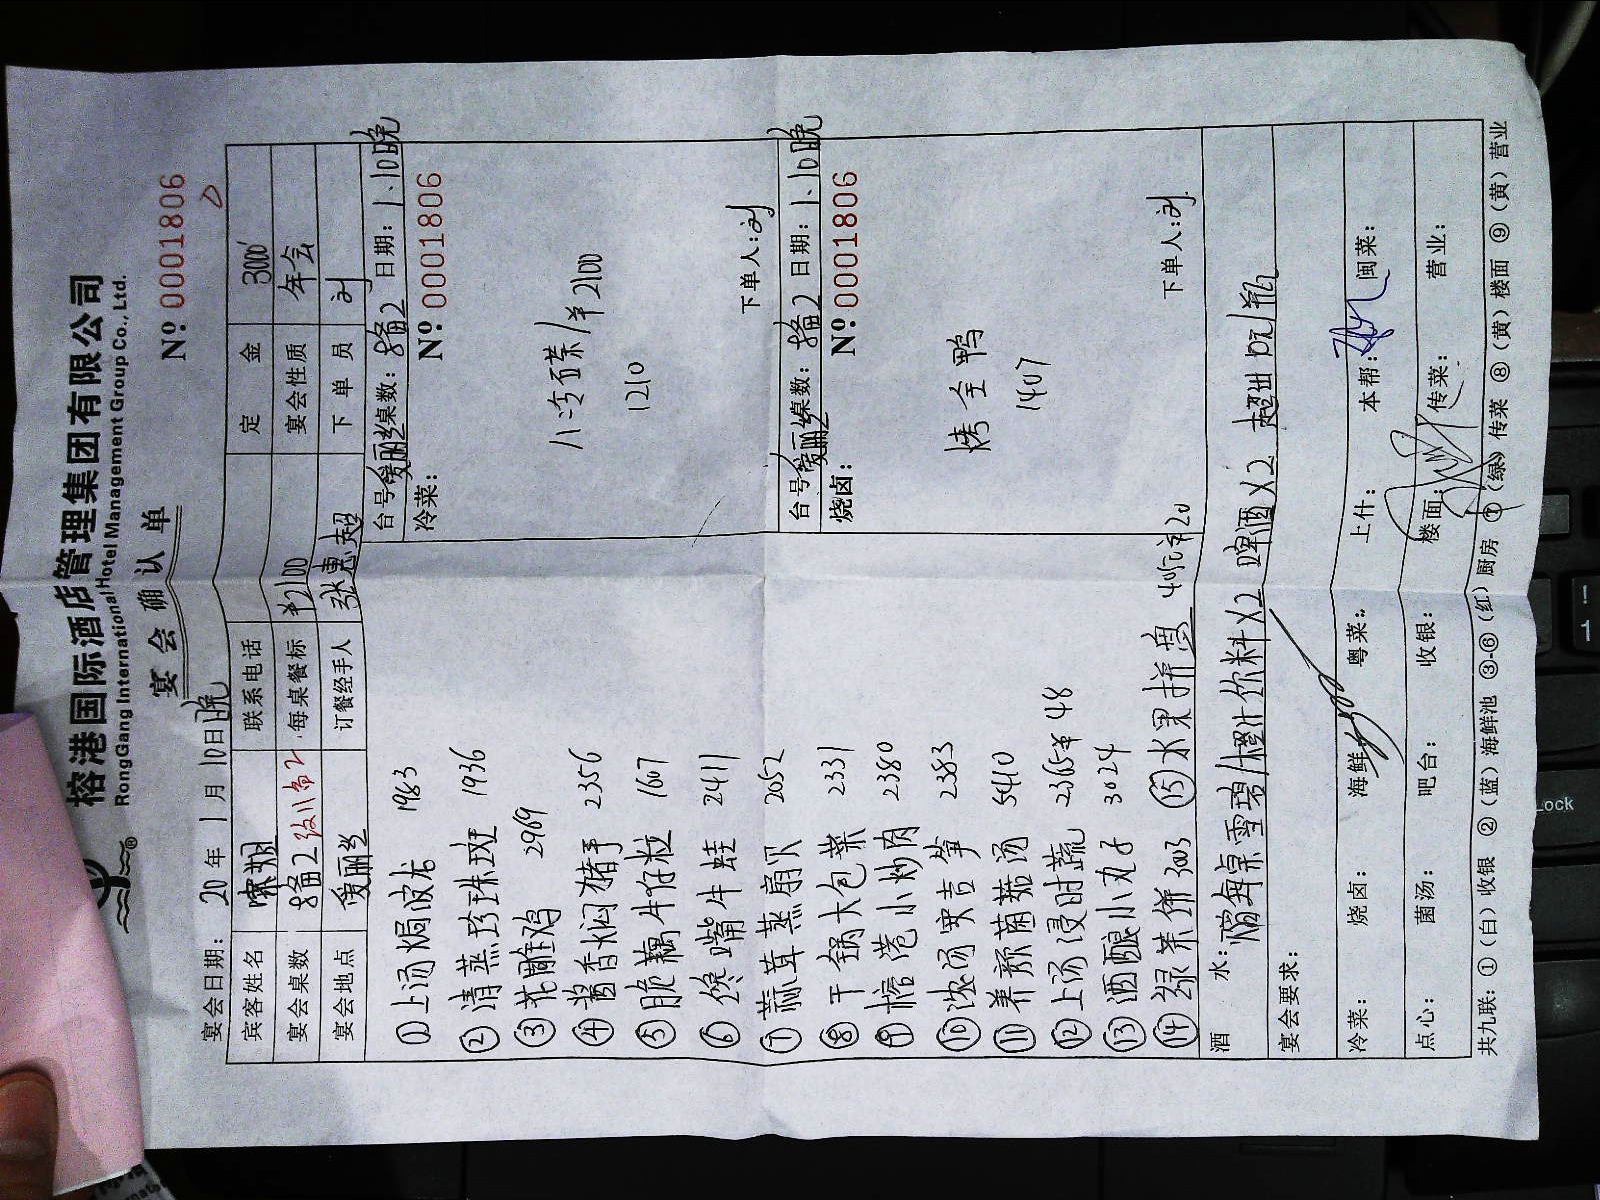 榕港国际酒店管理集团有限公司
RongGang International Hotel Management Group Co., Ltd.
宴会确认单
№ 0001806
宴会日期： 20年 1月 10日晚
宾客姓名 联系电话 定金 3000
宴会桌数 8备2 每桌餐标 ¥2100 宴会性质 年会
宴会地点 爱丽丝 订餐经手人 张惠超 下单员 刘
① 上汤焗波龙 1983
② 清蒸珍珠斑 1936
③ 花雕鸡 2969
④ 酱香焖猪手 2356
⑤ 脆藕牛仔粒 1607
⑥ 馋嘴牛蛙 2411
⑦ 蒜茸蒸扇贝 2052
⑧ 干锅大包菜 2331
⑨ 榕港小炒肉 2380
⑩ 浓汤吉笋 2383
⑪ 养颜菌菇汤 5410
⑫ 上汤浸时蔬 2365 ¥48
⑬ 酒酿小丸子 3024
⑭ 绿茶饼 3003 ⑮ 水果拼盘
台号 爱丽丝 桌数：8备2 日期：1、10晚
冷菜： № 0001806
八冷碟/¥2100
1210
下单人：刘
台号 爱丽丝 桌数：8备2 日期：1、10晚
烧卤： № 0001806
烤全鸭
1407
下单人：刘
酒水： 每桌雪碧/橙汁饮料×2 啤酒×2 超出 /瓶
宴会要求：
冷菜： 烧卤： 海鲜： 粤菜： 上什： 本帮： 闽菜：
点心： 菌汤： 吧台： 收银： 楼面： 传菜： 营业：
共九联：①（白）收银 ②（蓝）海鲜池 ③-⑥（红）厨房 ⑦（绿）传菜 ⑧（黄）楼面 ⑨（黄）营业
Lock